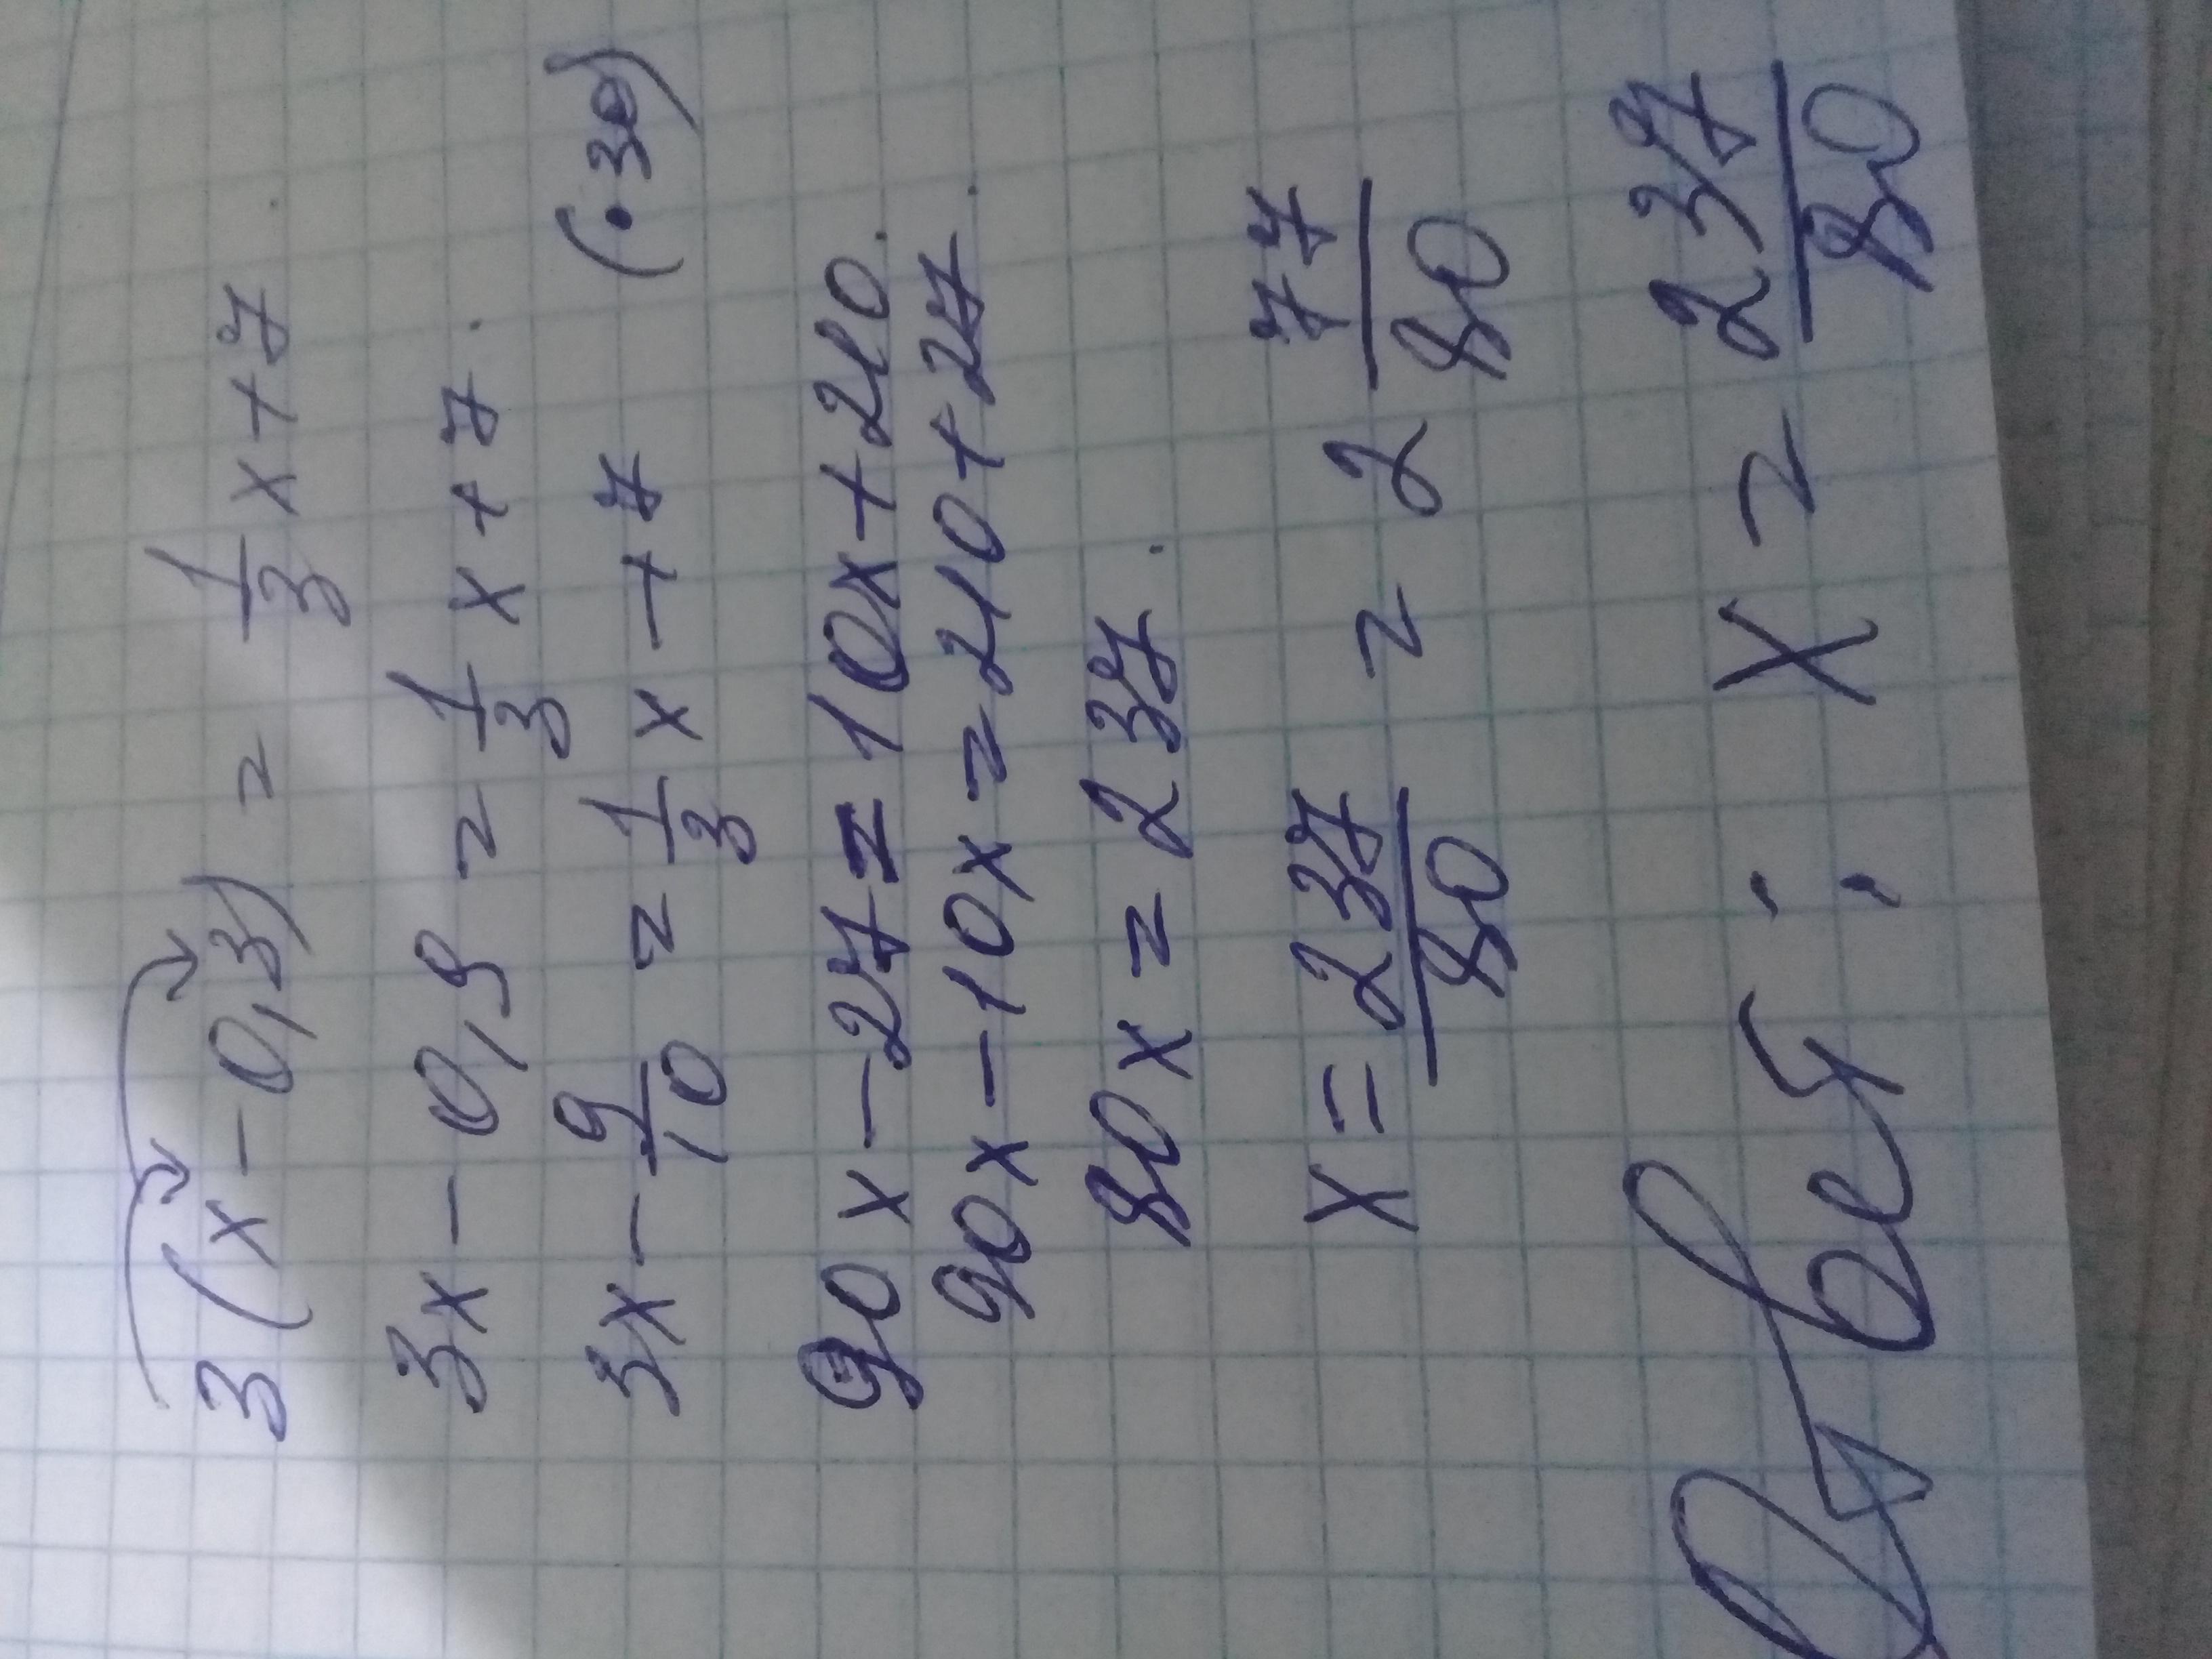 3(x-0,3) = 1/3 x+7
3x-0,9 = 1/3 x+7.
3x - 9/10 = 1/3 x+7 (·30)
90x-27=10x+210.
90x-10x=210+27.
80x=237.
x = 237/80 = 2 77/80
Ответ: x = 237/80